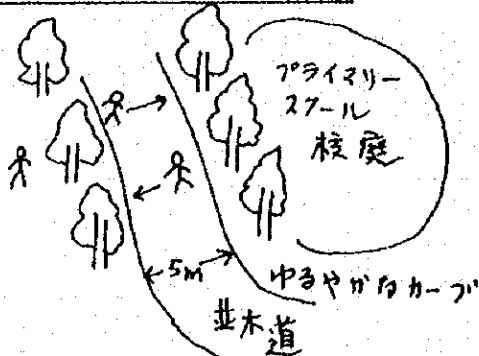 プライマリー
スクール
校庭
5m
ゆるやかなカーブ
並木道